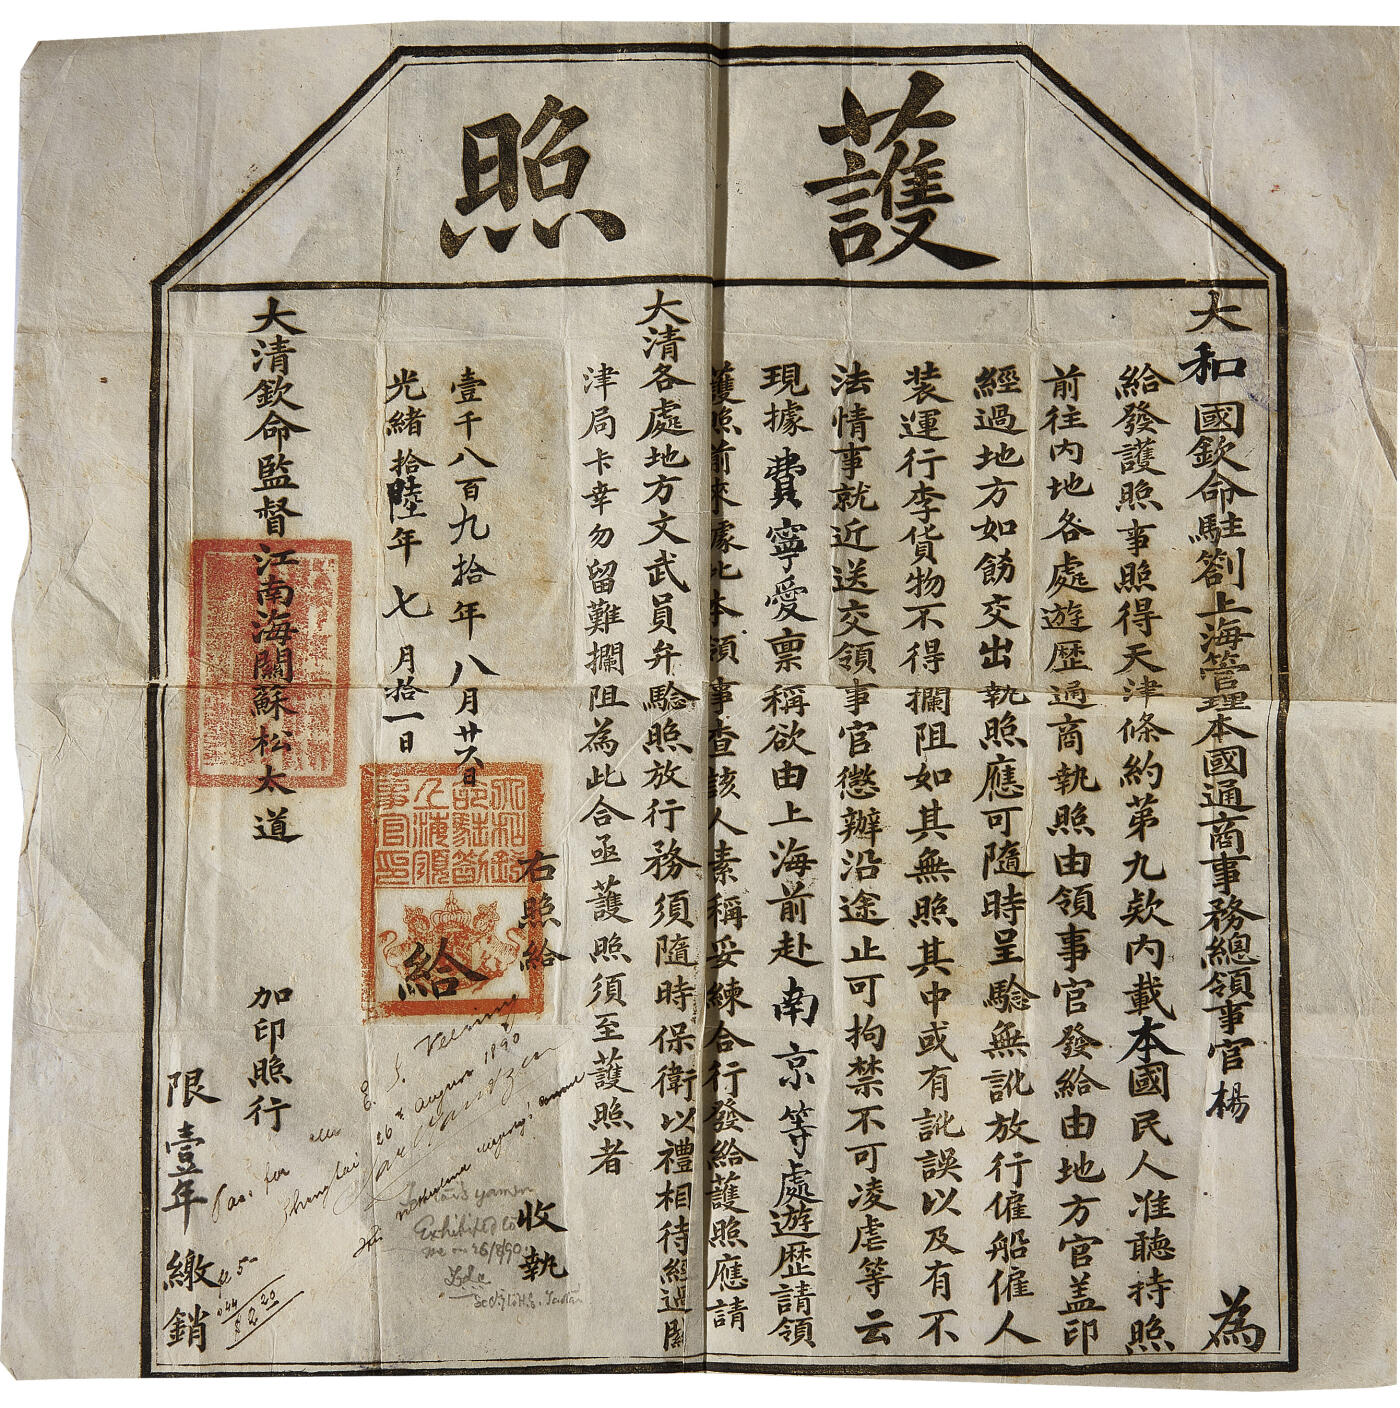 護照
大和國欽命駐劄上海管理本國通商事務總領事官楊 為
給發護照事照得天津條約第九款內載本國民人准聽持照
前往內地各處遊歷通商執照由領事官發給由地方官盖印
經過地方如飭交出執照應可隨時呈驗無訛放行僱船僱人
裝運行李貨物不得攔阻如其無照其中或有訛誤以及有不
法情事就近送交領事官懲辦沿途止可拘禁不可凌虐等云
現據費寧愛禀稱欲由上海前赴南京等處遊歷請領
護照前來據此本領事查該人素稱妥練合行發給護照應請
大清各處地方文武員弁驗照放行務須隨時保衛以禮相待經過關
津局卡幸勿留難攔阻為此合亟護照須至護照者
右照給 收執
壹千八百九拾年八月廿六日
給
光緒拾陸年七月拾一日
大清欽命監督江南海關蘇松太道 加印照行
限壹年繳銷
Pass for
Shanghai 26th August 1890
His Netherland Majesty's
Taotai's yamen
Exhibited to
me on 26/8/90.
$ 2.20